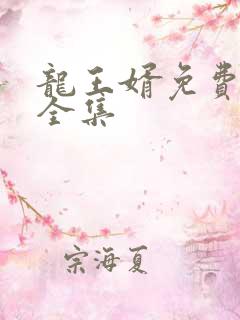 龍王婿免費
全集
宗海夏